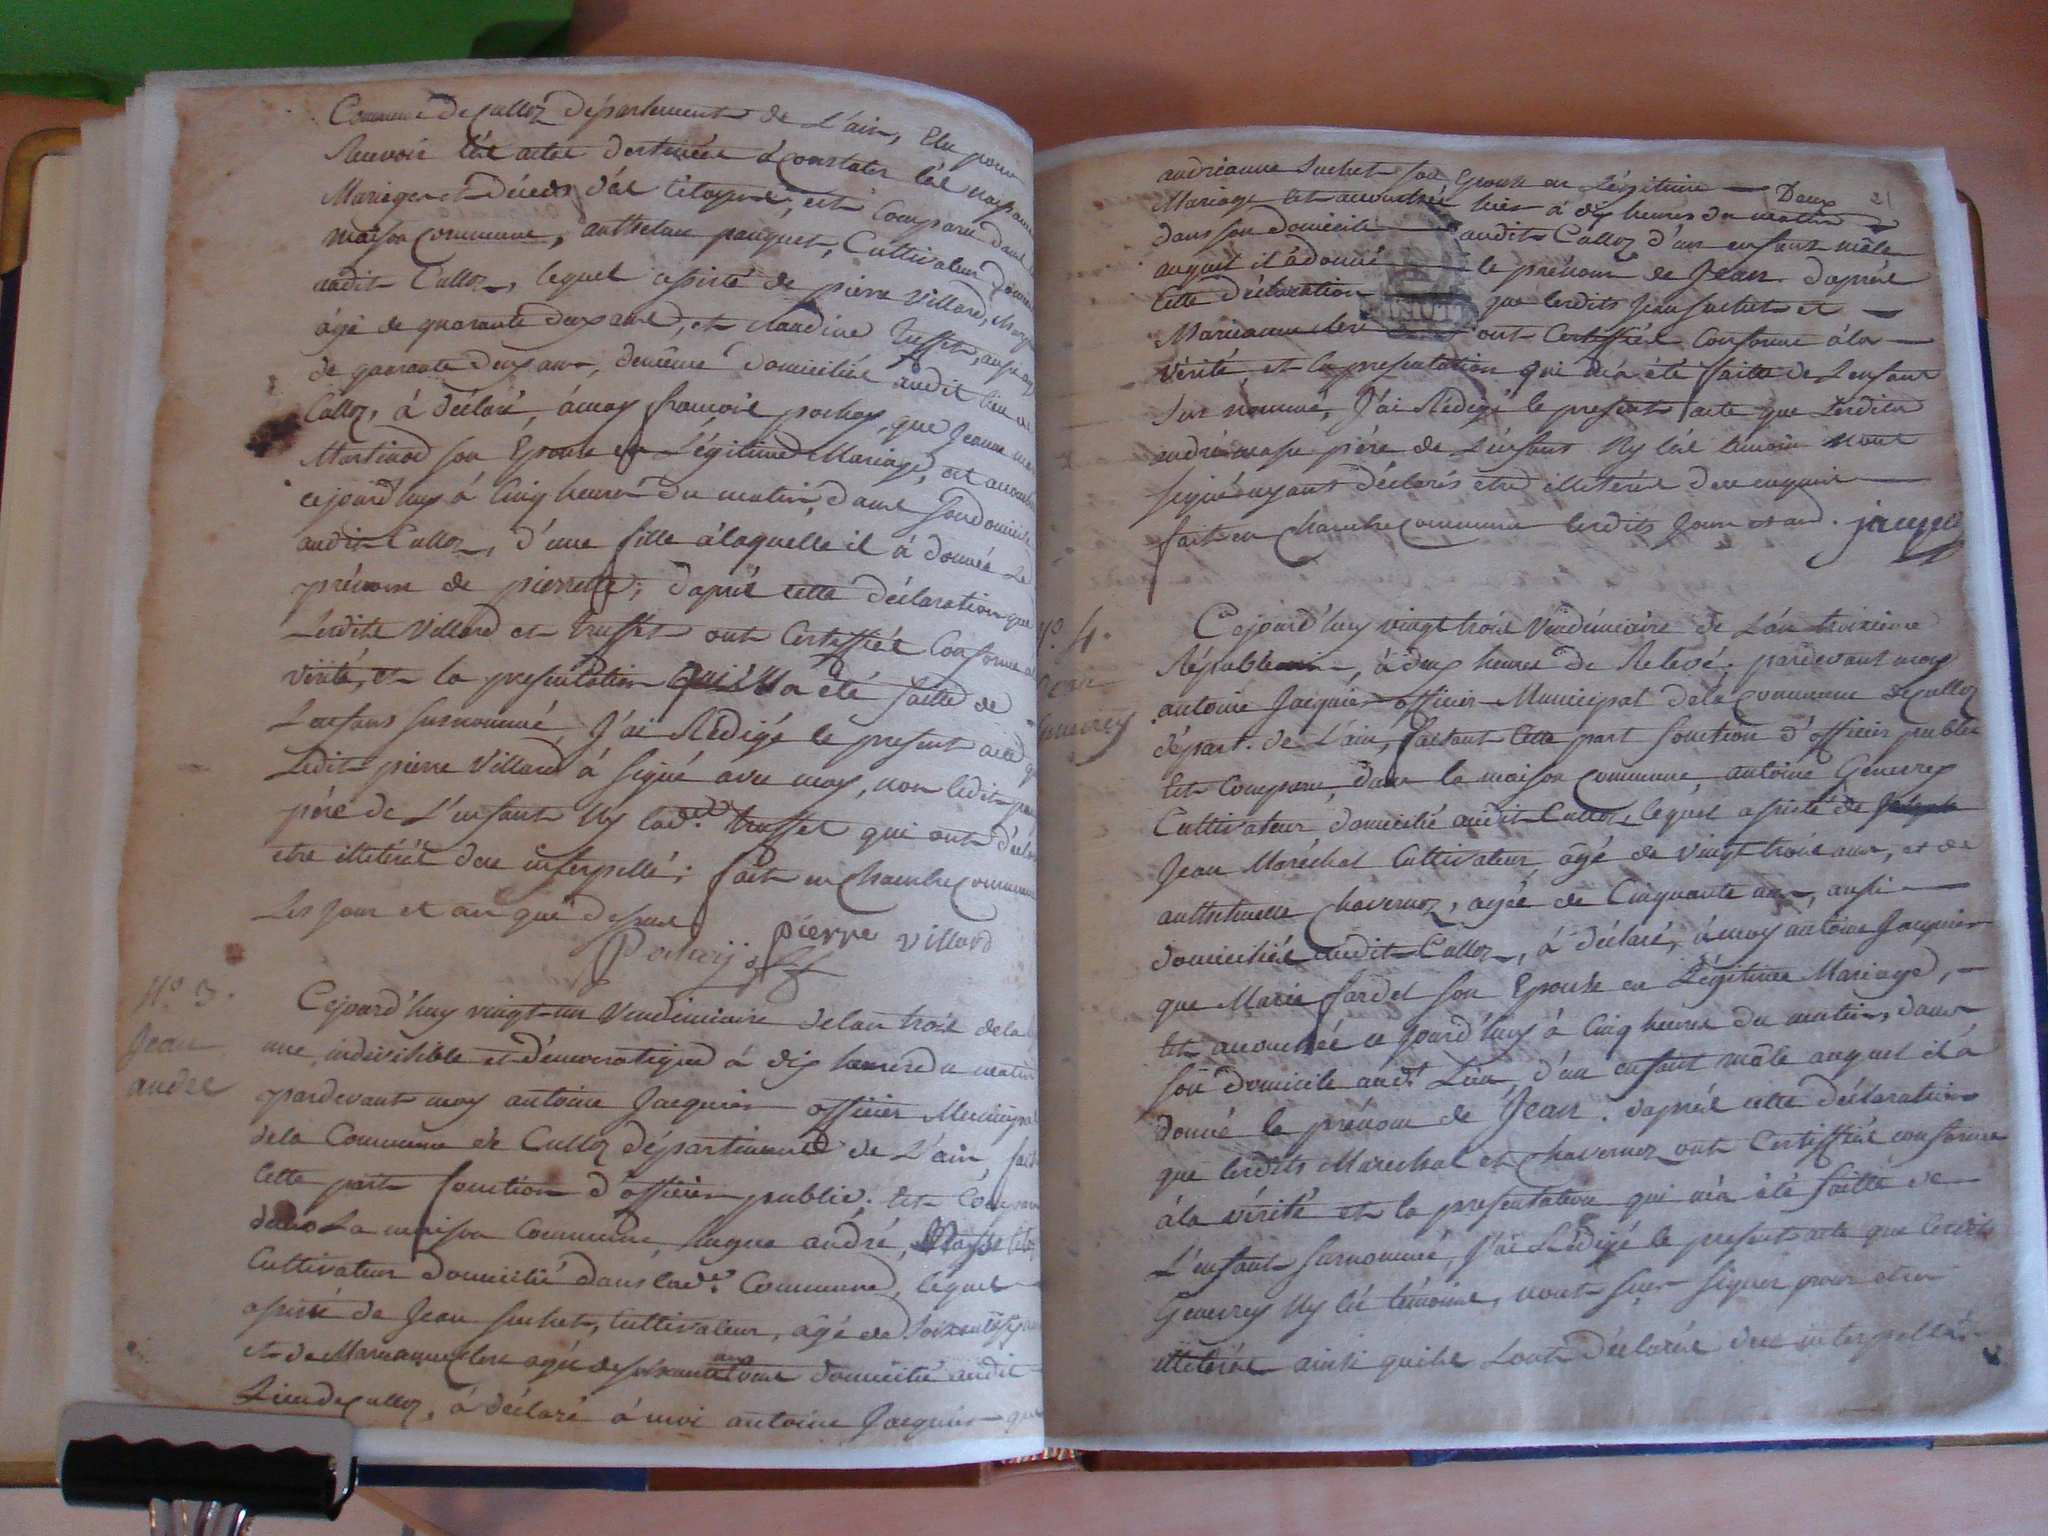 Commune de Culloz département de L'ain, Elu pour
Recevoir lés actes destinées à Constater lés naissances
Mariages et décès dés Citoyens, est Comparu dans la
maison commune, anthelme pauquet, Cultivateur
audit Culloz, lequel assisté de pierre Villard,
âgé de quarante deux ans, et claudine trusset, aussi
de quarante deux ans, demême domiciliés audit lieu de
Culloz, à déclaré, à moy françois pochoy, que Jeanne
Martinod son Epouse en Légitime Mariage, est accouchée
cejourd'huy à Cinq heures du matin, dans son domicile
audit Culloz, d'une fille à laquelle il à donnée Le
prénom de pierrette; d'aprés cette déclaration que
Lesdits Villard et trusset ont Certiffiés Conforme a
vérité, et la presentation qui m'a été faitte de
L'enfant susnommé, J'ai Rédigé le present acte
Ledit pierre Villard à signé avec moy, non ledit
pére de L'enfant Ny lad.e trusset qui ont déclaré
etre illetérés de ce interpellé; fait en Chambre Commune
Les Jour et an que dessus
pierre villard
N.º 3.
Jean
andre
Cejourd'huy vingt-un Vendémiaire de l'an trois de la
une, indivisible et démocratique à dix heures du matin
pardevant moy antoine Jacquier officier Municipal
de la Commune de Culloz département de L'ain,
Cette part fonction d'officier public; Est Comparu
dans La maison Commune, hugue andré,
Cultivateur domicilié dans lad.e Commune, lequel
assisté de Jean suchet, Cultivateur, âgé de
et de Marianne clerc agée de domiciliés audit
Lieu de Culloz, à déclaré à moi antoine Jacquier que
21
andrianne Suchet son Epouse en Légitime
Mariage est accouchée hier à dix heures du matin Deux
dans son domicile audit Culloz d'un enfant mâle
auquel il à donné le prénom de Jean. d'aprés
Cette déclaration que lesdits Jean suchet et
Marianne clerc ont Certiffiés Conforme à la
vérité, et la presentation qui m'a été faitte de L'enfant
Sus nommé, J'ai Rédigé le present acte que Lesdits
andré pére de L'enfant Ny lés temoins n'ont
signé ayant déclarés être illetérés de ce enquis
fait en chambre commune lesdits Jour et and. jacquier
N.º 4.
Jean
Genevrey
Cejourd'huy vingt trois Vendémiaire de L'an troixieme
Républicain, à deux heures de Relevé; pardevant moy
antoine Jacquier officier Municipal de la Commune de Culloz
départ. de L'ain, faisant Cette part fonction d'officier public
Est Comparu, dans la maison commune antoine Genevrey
Cultivateur domicilié audit Culloz, lequel assisté de
Jean Maréchal Cultivateur, âgé de Vingt trois ans, et de
anthelmette Chavernoz, agée de Cinquante ans, aussi
domiciliés audit Culloz, à déclaré, à moy antoine Jacquier
que Marie fardel son Epouse en Légitime Mariage,
Est accouchée ce jourd'huy à Cinq heures du matin, dans
son domicile aud.t Lieu, d'un enfant mâle auquel il à
donné le prénom de Jean. d'aprés cette déclaration
que lesdits Marechal et chavernoz ont Certiffiés conforme
à la vérité et la presentation qui m'a été faitte de
L'enfant surnommé, J'ai Rédigé le present acte que Lesdits
Genevrey Ny lés témoins, n'ont sçu signer pour etre
illetérés ainsi quils L'ont déclarés de ce interpellés.